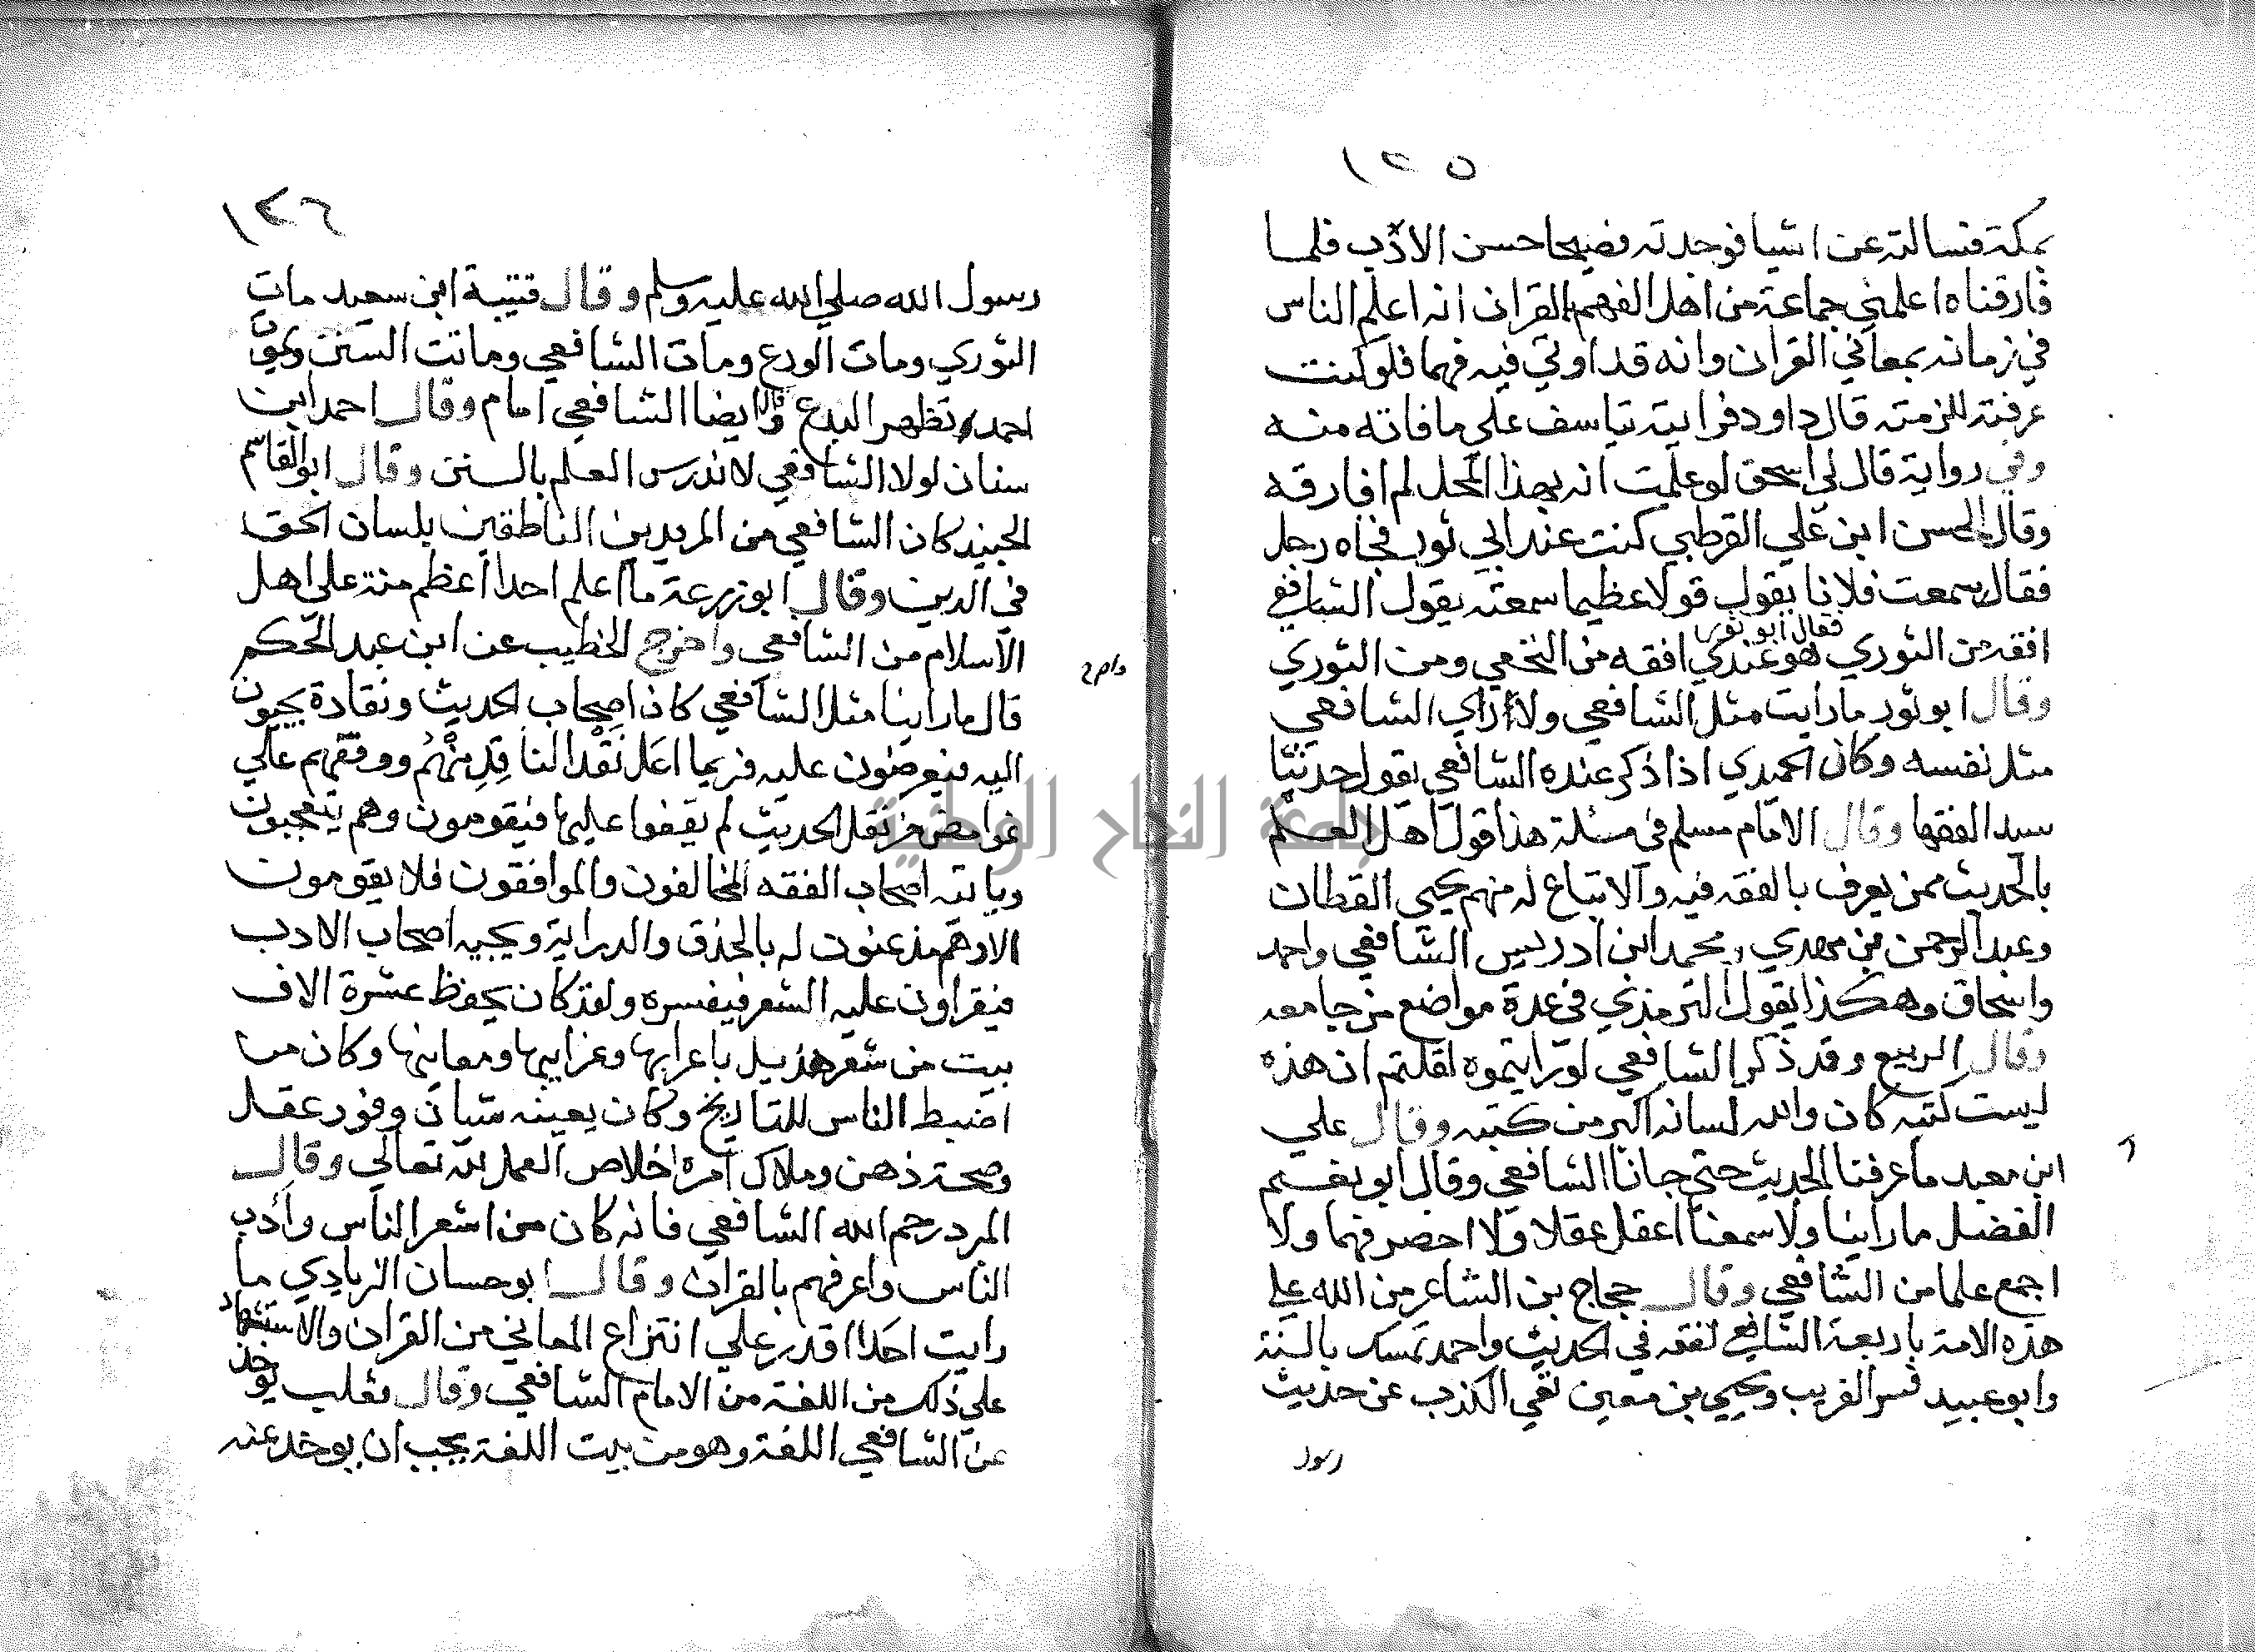 ١٢٥
بمكة فسالته عن اشيا فوجدته فصيحا حسن الادب فلما
فارقناه اعلمني جماعة من اهل الفهم بالقران انه اعلم الناس
في زمانه بمعاني القران وانه قد اوتي فيه فهما فلو كنت
عرفته للزمته قال داود فرايته يتاسف علي ما فاته منه
وفي رواية قال لي اسحق لو علمت انه بهذا المحل لم افارقه
وقال الحسن ابن علي القرطبي كنت عند ابي ثور فجاه رجل
فقال سمعت فلانا يقول قولا عظيما سمعته يقول الشافعي
افقه من الثوري فقال ابو ثور هو عندي افقه من النخعي ومن الثوري
وقال ابو ثور ما رايت مثل الشافعي ولا راي الشافعي
مثل نفسه وكان الحميدي اذا ذكر عنده الشافعي يقول حدثنا
سيد الفقها وقال الامام مسلم في مسئلة هذا قول اهل العلم
بالحديث ممن يعرف بالفقه فيه والاتباع له منهم يحيي القطان
وعبد الرحمن بن مهدي ومحمد ابن ادريس الشافعي واحمد
واسحاق وهكذا يقول الترمذي في عدة مواضع من جامعه
وقال الربيع وقد ذكر الشافعي لو رايتموه لقلتم ان هذه
ليست كتبه كان والله لسانه اكبر من كتبه وقال علي
ابن معبد ما عرفنا الحديث حتي جانا الشافعي وقال ابو نعيم
الفضل ما راينا ولا سمعنا اعقل عقلا ولا احصر فهما ولا
اجمع علما من الشافعي وقال حجاج بن الشاعر من الله علي
هذه الامة باربعة الشافعي تفقه في الحديث واحمد تمسك بالسنة
وابو عبيد فسر الغريب ويحيي بن معين نفي الكذب عن حديث
رسول
١٢٦
رسول الله صلي الله عليه وسلم وقال قتيبة ابن سعيد مات
الثوري ومات الورع ومات الشافعي وماتت السنن ويموت
احمد وتظهر البدع وقال ايضا الشافعي امام وقال احمد ابن
سنان لولا الشافعي لاندرس العلم بالسنن وقال ابو القاسم
الجنيد كان الشافعي من المريدين الناطقين بلسان الحق
في الدين وقال ابو زرعة ما اعلم احدا اعظم منة علي اهل
الاسلام من الشافعي واخرج الخطيب عن ابن عبد الحكم
قال ما راينا مثل الشافعي كان اصحاب الحديث ونقادة يجيون
اليه فيعرضون عليه فربما اعل نقد الناقد منهم ووقفهم علي
غوامض من نقل الحديث لم يقفوا عليها فيقومون وهم يتعجبون
وياتيه اصحاب الفقه المخالفون والموافقون فلا يقومون
الا وهم مذعنون له بالحذق والدراية ويجيه اصحاب الادب
فيقراون عليه الشعر فيفسره ولقد كان يحفظ عشرة الاف
بيت من شعر هذيل باعرابها وغرايبها ومعانيها وكان من
اضبط الناس للتاريخ وكان يعينه شيان وفور عقل
وصحة ذهن وملاك امره اخلاص العمل لله تعالي وقال
المبرد رحم الله الشافعي فانه كان من اشعر الناس وادب
الناس واعرفهم بالقران وقال ابو حسان الزيادي ما
رايت احدا اقدر علي انتزاع المعاني من القران والاستشهاد
علي ذلك من اللغة من الامام الشافعي وقال ثعلب يوخذ
عن الشافعي اللغة وهو من بيت اللغة يجب ان يوخذ عنه
جامعة النجاح الوطنية